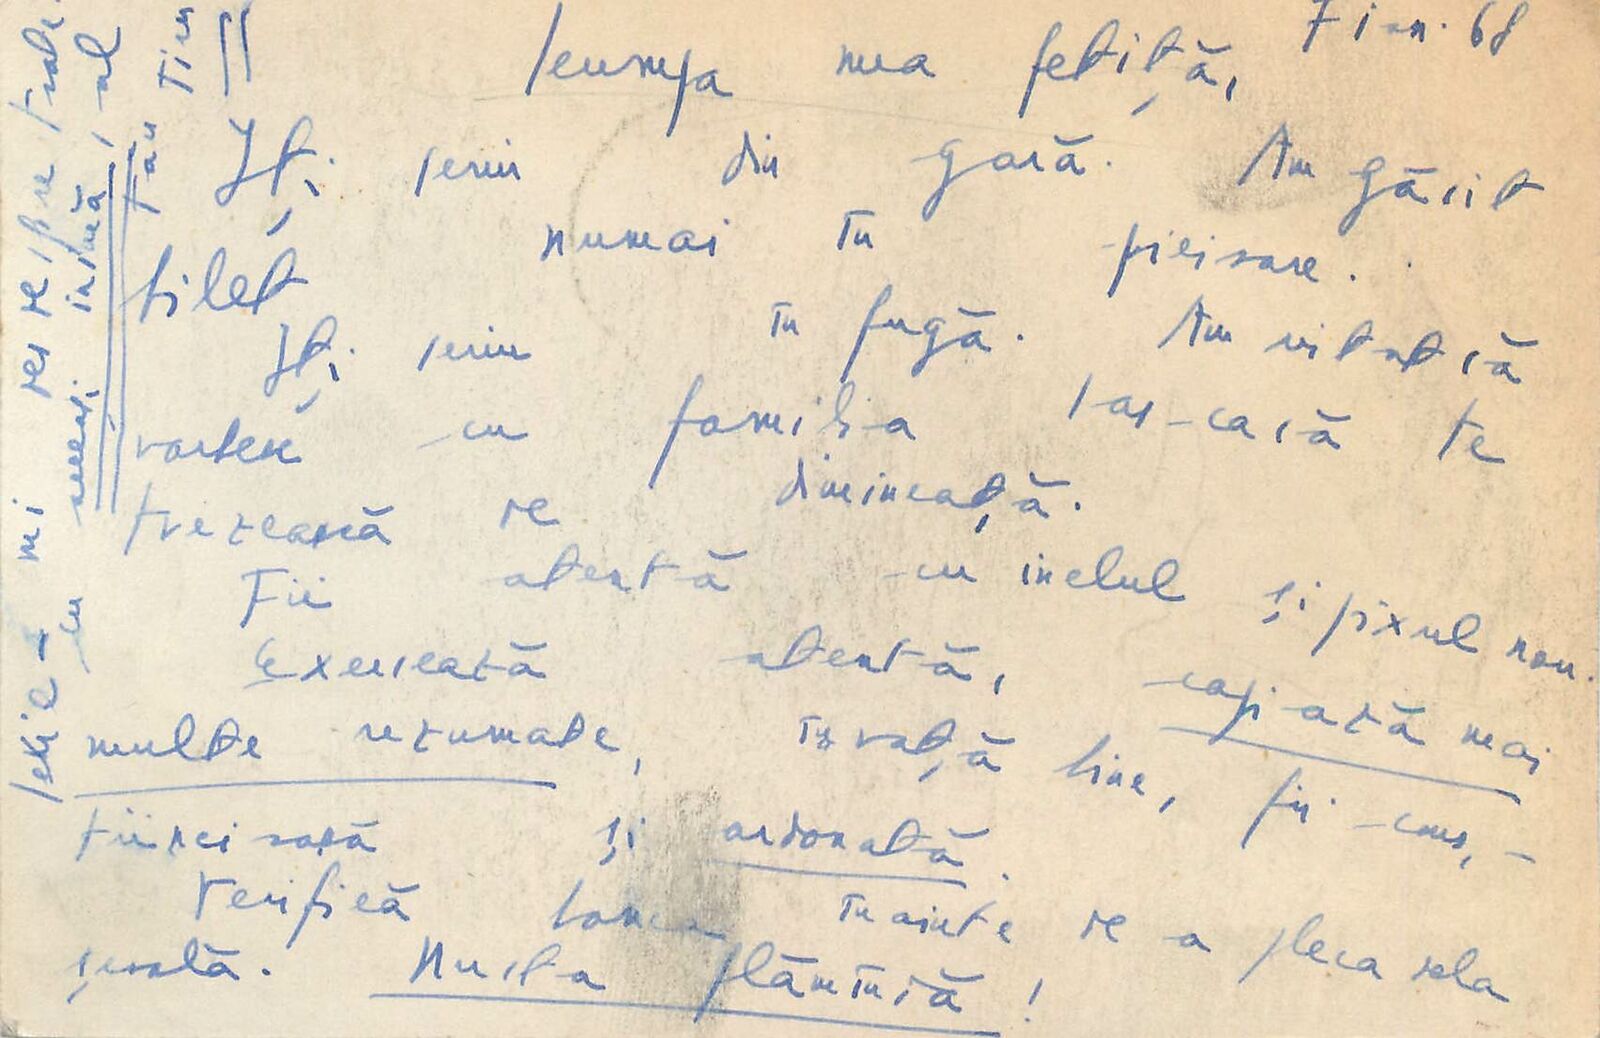 7 ian. 68
Scumpa mea fetiță,
Îți scriu din gară. Am găsit
bilet numai în picioare.
Îți scriu în fugă. Am uitat că
vorbesc cu familia s-as-casă te
trezească de dimineață.
Fii atentă cu inelul și pixul nou.
Exersează atentă, copiază mai
multe rezumate, învață bine, fii conș-
tiincioasă și ordonată.
Verifică banca înainte de a pleca dela
școală. Nu sta flămîndă!
Scrie-mi des despre toate.
cu aceeași inimă, al
tău Tin